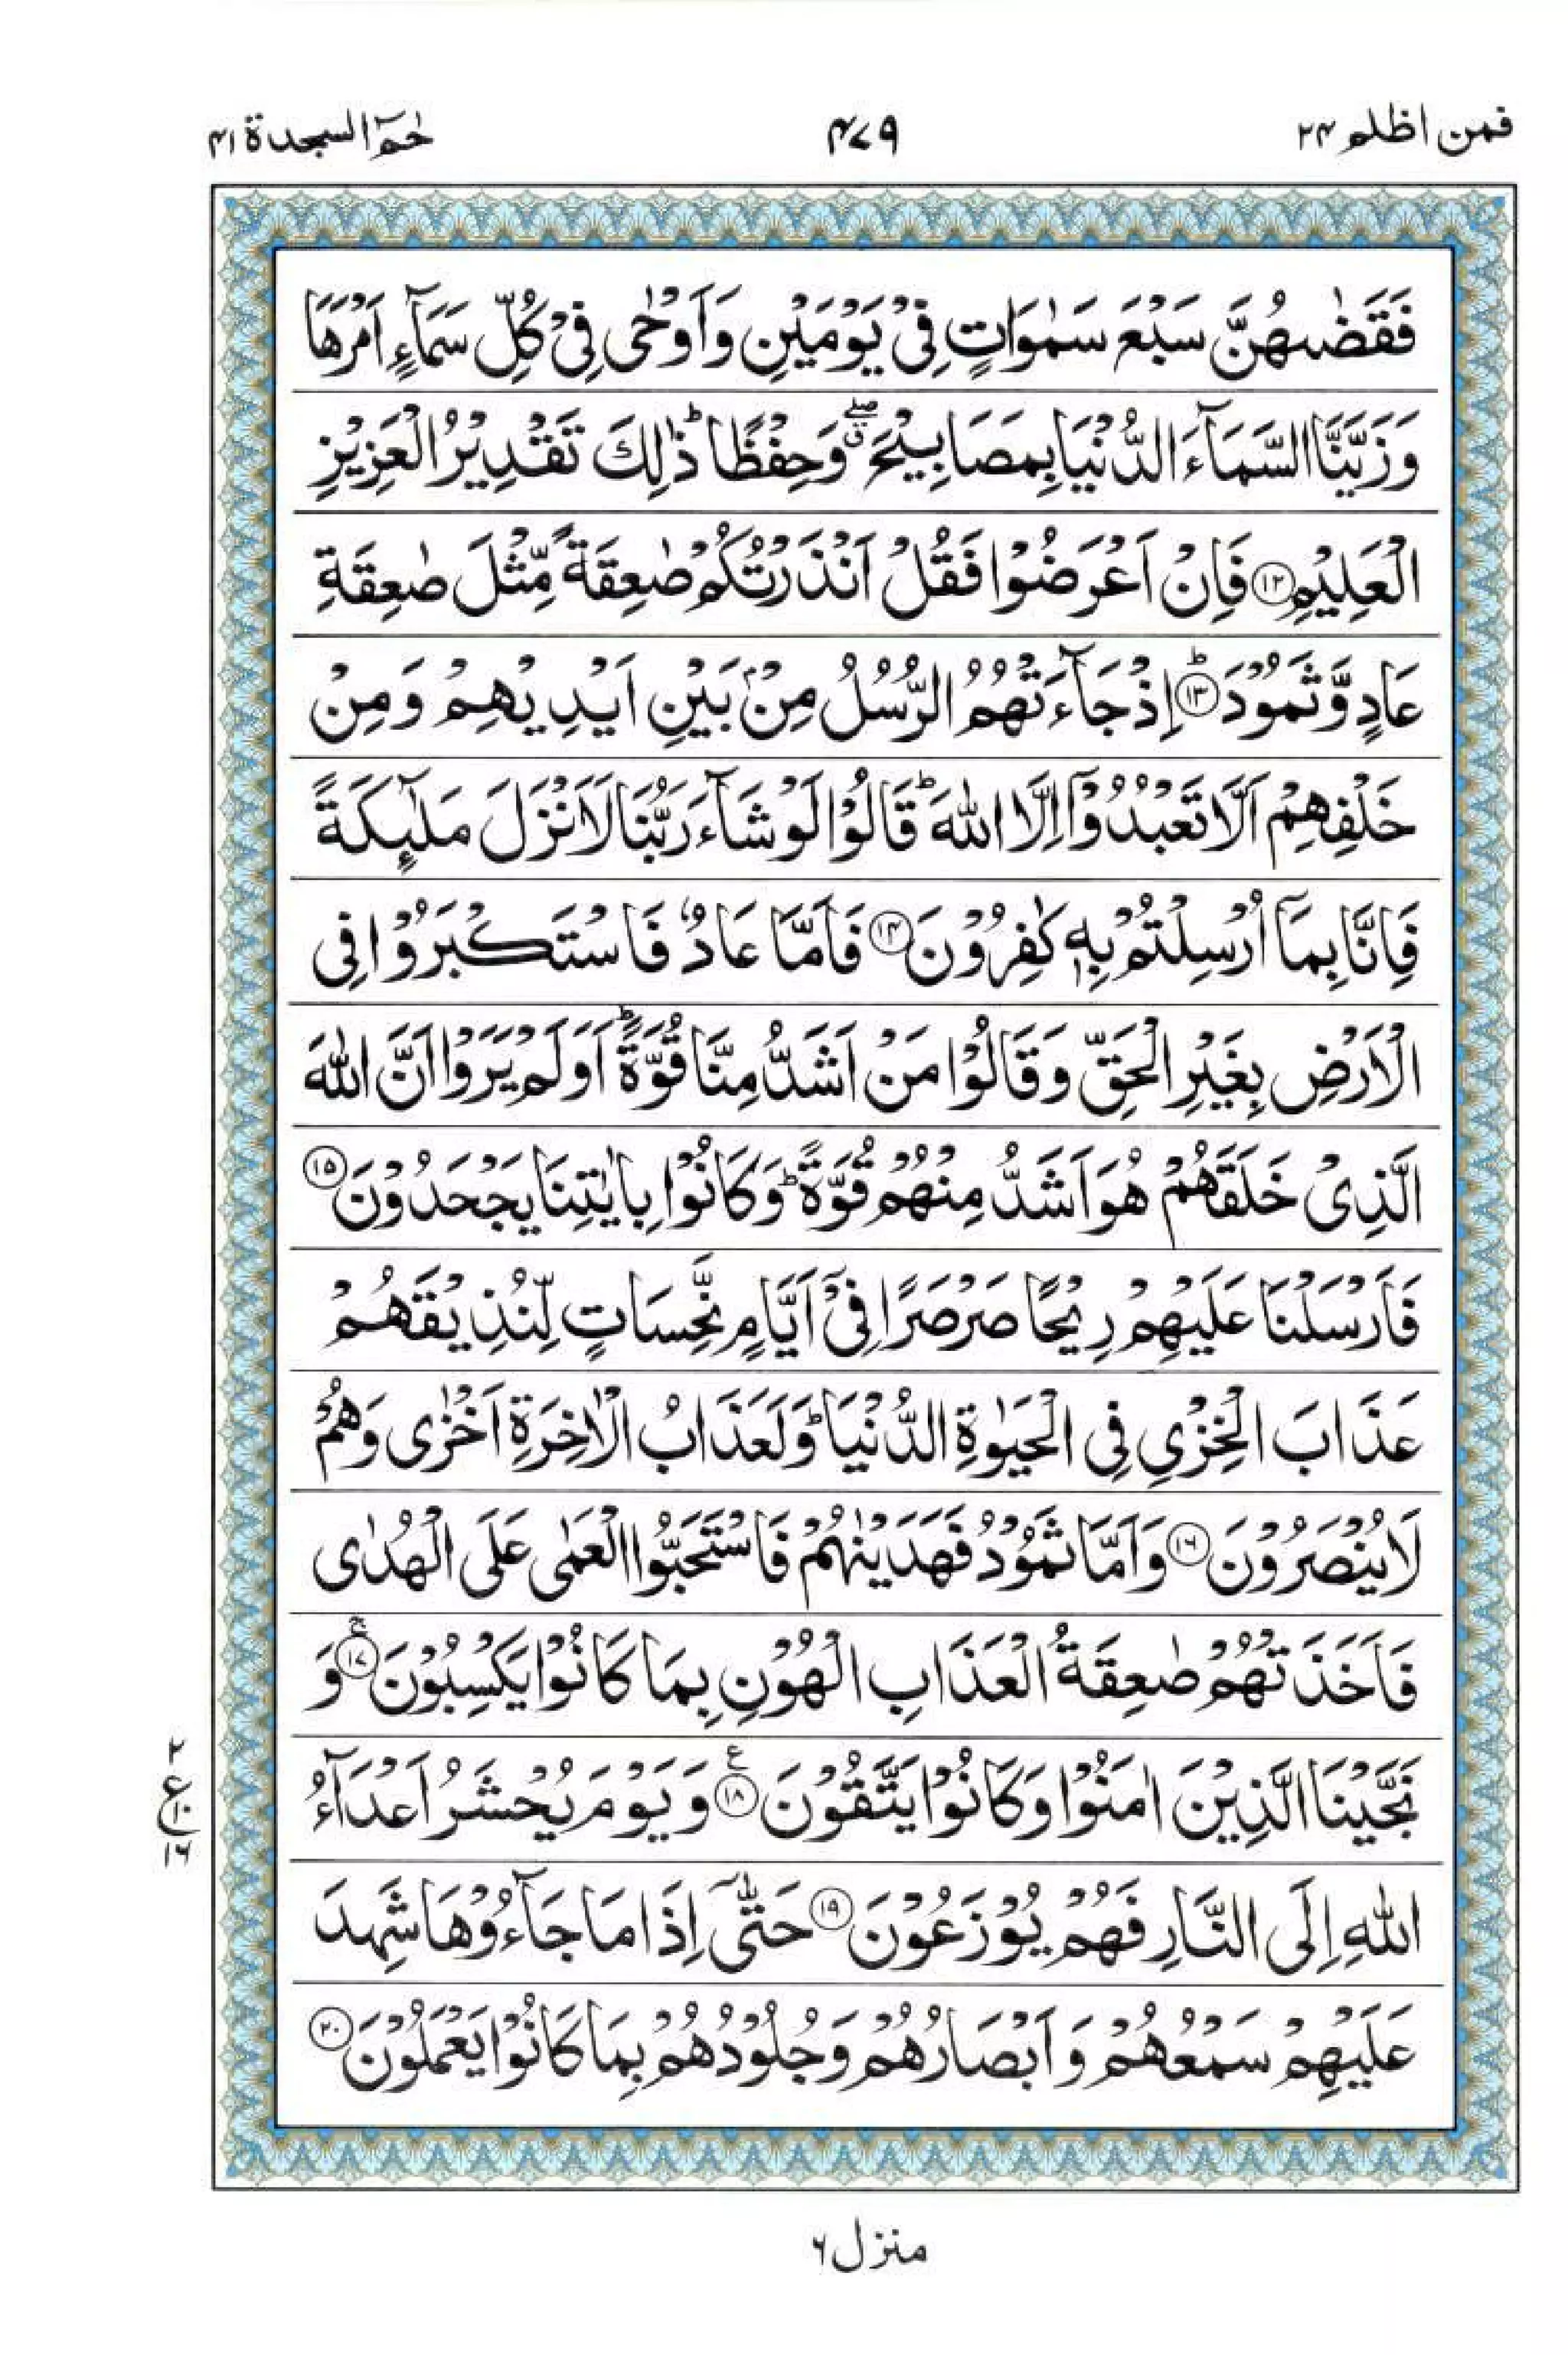 فمن اظلم ۲۴
۴۷۹
حٰمٓ السجدة ۴۱
فَقَضٰىهُنَّ سَبْعَ سَمٰوَاتٍ فِیْ یَوْمَیْنِ وَاَوْحٰی فِیْ كُلِّ سَمَآءٍ اَمْرَهَا
وَزَیَّنَّا السَّمَآءَ الدُّنْیَا بِمَصَابِیْحَ ۖۗ وَحِفْظًا ؕ ذٰلِكَ تَقْدِیْرُ الْعَزِیْزِ
الْعَلِیْمِ ﴿۱۲﴾ فَاِنْ اَعْرَضُوْا فَقُلْ اَنْذَرْتُكُمْ صٰعِقَةً مِّثْلَ صٰعِقَةِ
عَادٍ وَّثَمُوْدَ ؕ﴿۱۳﴾ اِذْ جَآءَتْهُمُ الرُّسُلُ مِنْۢ بَیْنِ اَیْدِیْهِمْ وَمِنْ
خَلْفِهِمْ اَلَّا تَعْبُدُوْۤا اِلَّا اللّٰهَ ؕ قَالُوْا لَوْ شَآءَ رَبُّنَا لَاَنْزَلَ مَلٰٓىِٕكَةً
فَاِنَّا بِمَاۤ اُرْسِلْتُمْ بِهٖ كٰفِرُوْنَ ﴿۱۴﴾ فَاَمَّا عَادٌ فَاسْتَكْبَرُوْا فِی
الْاَرْضِ بِغَیْرِ الْحَقِّ وَقَالُوْا مَنْ اَشَدُّ مِنَّا قُوَّةً ؕ اَوَلَمْ یَرَوْا اَنَّ اللّٰهَ
الَّذِیْ خَلَقَهُمْ هُوَ اَشَدُّ مِنْهُمْ قُوَّةً ؕ وَكَانُوْا بِاٰیٰتِنَا یَجْحَدُوْنَ ﴿۱۵﴾
فَاَرْسَلْنَا عَلَیْهِمْ رِیْحًا صَرْصَرًا فِیْۤ اَیَّامٍ نَّحِسَاتٍ لِّنُذِیْقَهُمْ
عَذَابَ الْخِزْیِ فِی الْحَیٰوةِ الدُّنْیَا ؕ وَلَعَذَابُ الْاٰخِرَةِ اَخْزٰی وَهُمْ
لَا یُنْصَرُوْنَ ﴿۱۶﴾ وَاَمَّا ثَمُوْدُ فَهَدَیْنٰهُمْ فَاسْتَحَبُّوا الْعَمٰی عَلَی الْهُدٰی
فَاَخَذَتْهُمْ صٰعِقَةُ الْعَذَابِ الْهُوْنِ بِمَا كَانُوْا یَكْسِبُوْنَ ۚ﴿۱۷﴾ وَ
نَجَّیْنَا الَّذِیْنَ اٰمَنُوْا وَكَانُوْا یَتَّقُوْنَ ﴿۱۸﴾ ع وَیَوْمَ یُحْشَرُ اَعْدَآءُ
اللّٰهِ اِلَی النَّارِ فَهُمْ یُوْزَعُوْنَ ﴿۱۹﴾ حَتّٰۤی اِذَا مَا جَآءُوْهَا شَهِدَ
عَلَیْهِمْ سَمْعُهُمْ وَاَبْصَارُهُمْ وَجُلُوْدُهُمْ بِمَا كَانُوْا یَعْمَلُوْنَ ﴿۲۰﴾
۲
ع ۱۰
۱۶
منزل ۶